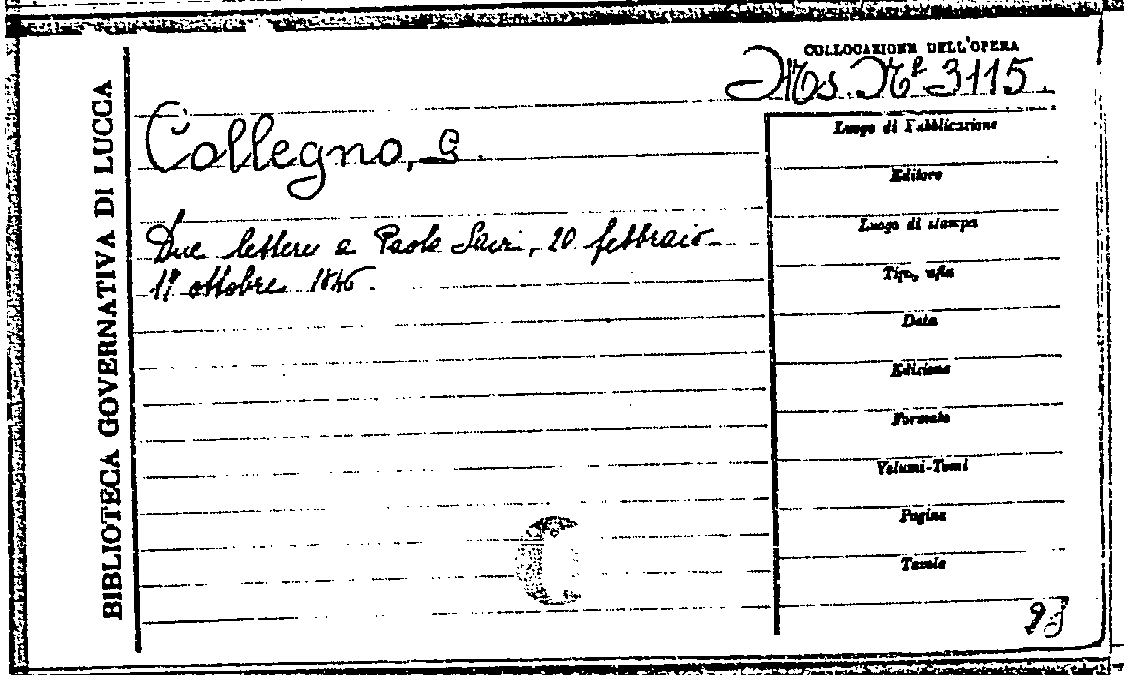 BIBLIOTECA GOVERNATIVA DI LUCCA
COLLOCAZIONE DELL'OPERA
Ms. Nº 3115.
Collegno, G.
Due lettere a Paolo 20 febbraio-
ottobre 1846.
Luogo di Pubblicazione
Editore
Luogo di stampa
Tipografia
Data
Edizione
Formato
Volumi-Tomi
Pagine
Tavole